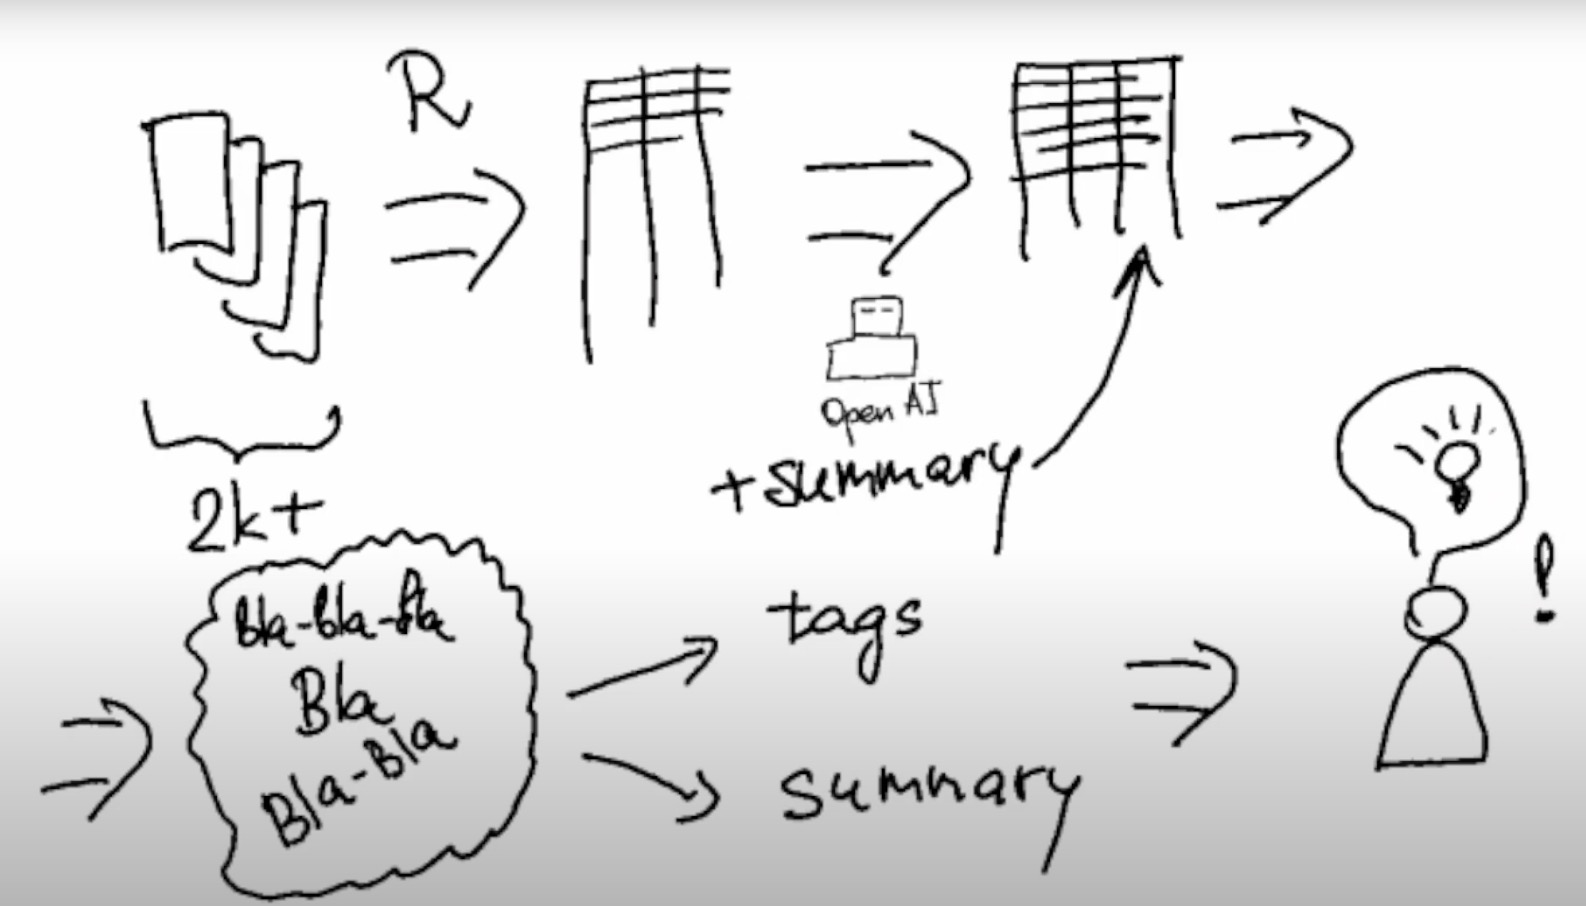 R
Open AI
+ summary
2k+
Bla-bla-bla
Bla
Bla-Bla
tags
summary
!